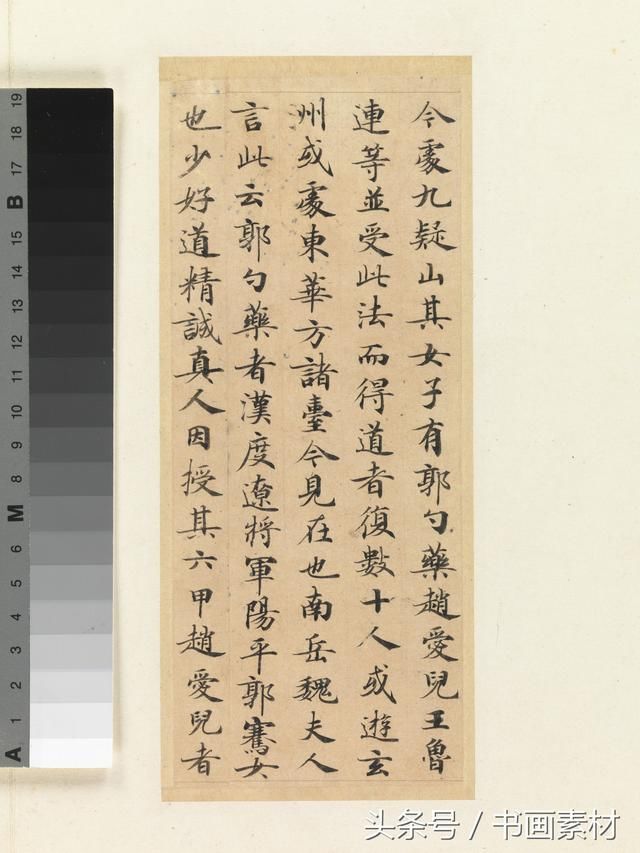 今處九疑山其女子有郭勺藥趙愛兒王魯
連等並受此法而得道者復數十人或遊玄
州或處東華方諸臺今見在也南岳魏夫人
言此云郭勺藥者漢度遼將軍陽平郭騫女
也少好道精誠真人因授其六甲趙愛兒者
A 1 2 3 4 5 6 M 8 9 10 11 12 13 14 15 B 17 18 19
头条号 / 书画素材